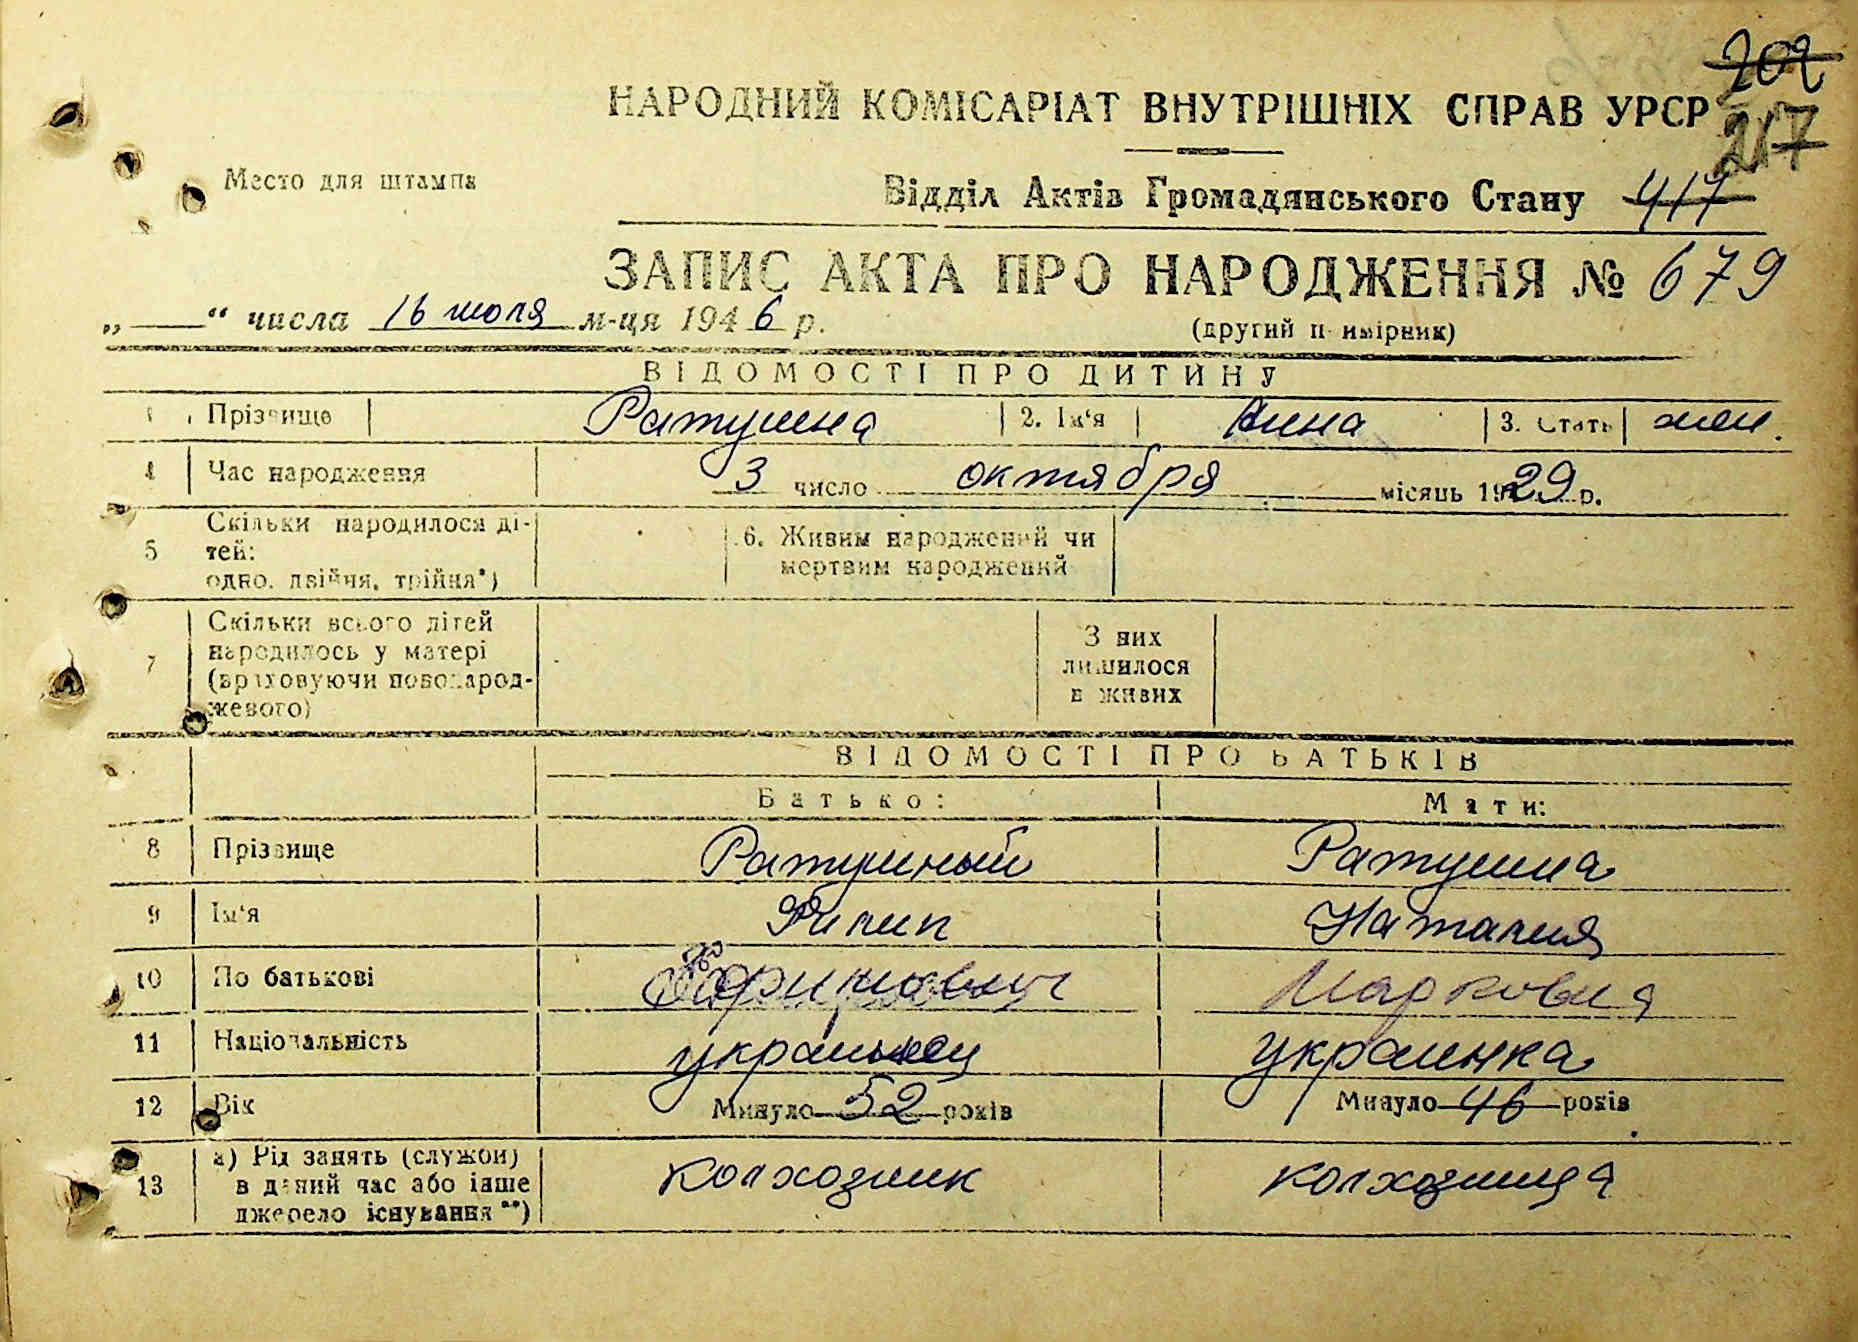 202
217
НАРОДНИЙ КОМІСАРІАТ ВНУТРІШНІХ СПРАВ УРСР
Место для штампа
Відділ Актів Громадянського Стану 417
ЗАПИС АКТА ПРО НАРОДЖЕННЯ № 679
„ “ числа 16 июля м-ця 1946 р.
(другий п имірник)
ВІДОМОСТІ ПРО ДИТИНУ
1 Прізвище Ратушна 2. Ім‘я Анна 3. Стать жен.
4 Час народження 3 число октября місяць 1929 р.
5 Скільки народилося ді-
тей:
одно, двійня, трійня*)
6. Живим народжений чи
мертвим народжений
7 Скільки всього дітей
народилось у матері
(враховуючи новонарод-
жевого)
З них
лишилося
в живих
ВІДОМОСТІ ПРО БАТЬКІВ
Батько: Мати:
8 Прізвище Ратушный Ратушна
9 Ім‘я Филип Наталия
10 По батькові Марковна
11 Національність украинец украинка
12 Вік Минуло 52 років Минуло 46 років
13 а) Рід занять (служби)
в даний час або інше
джерело існування **)
колхозник колхозница